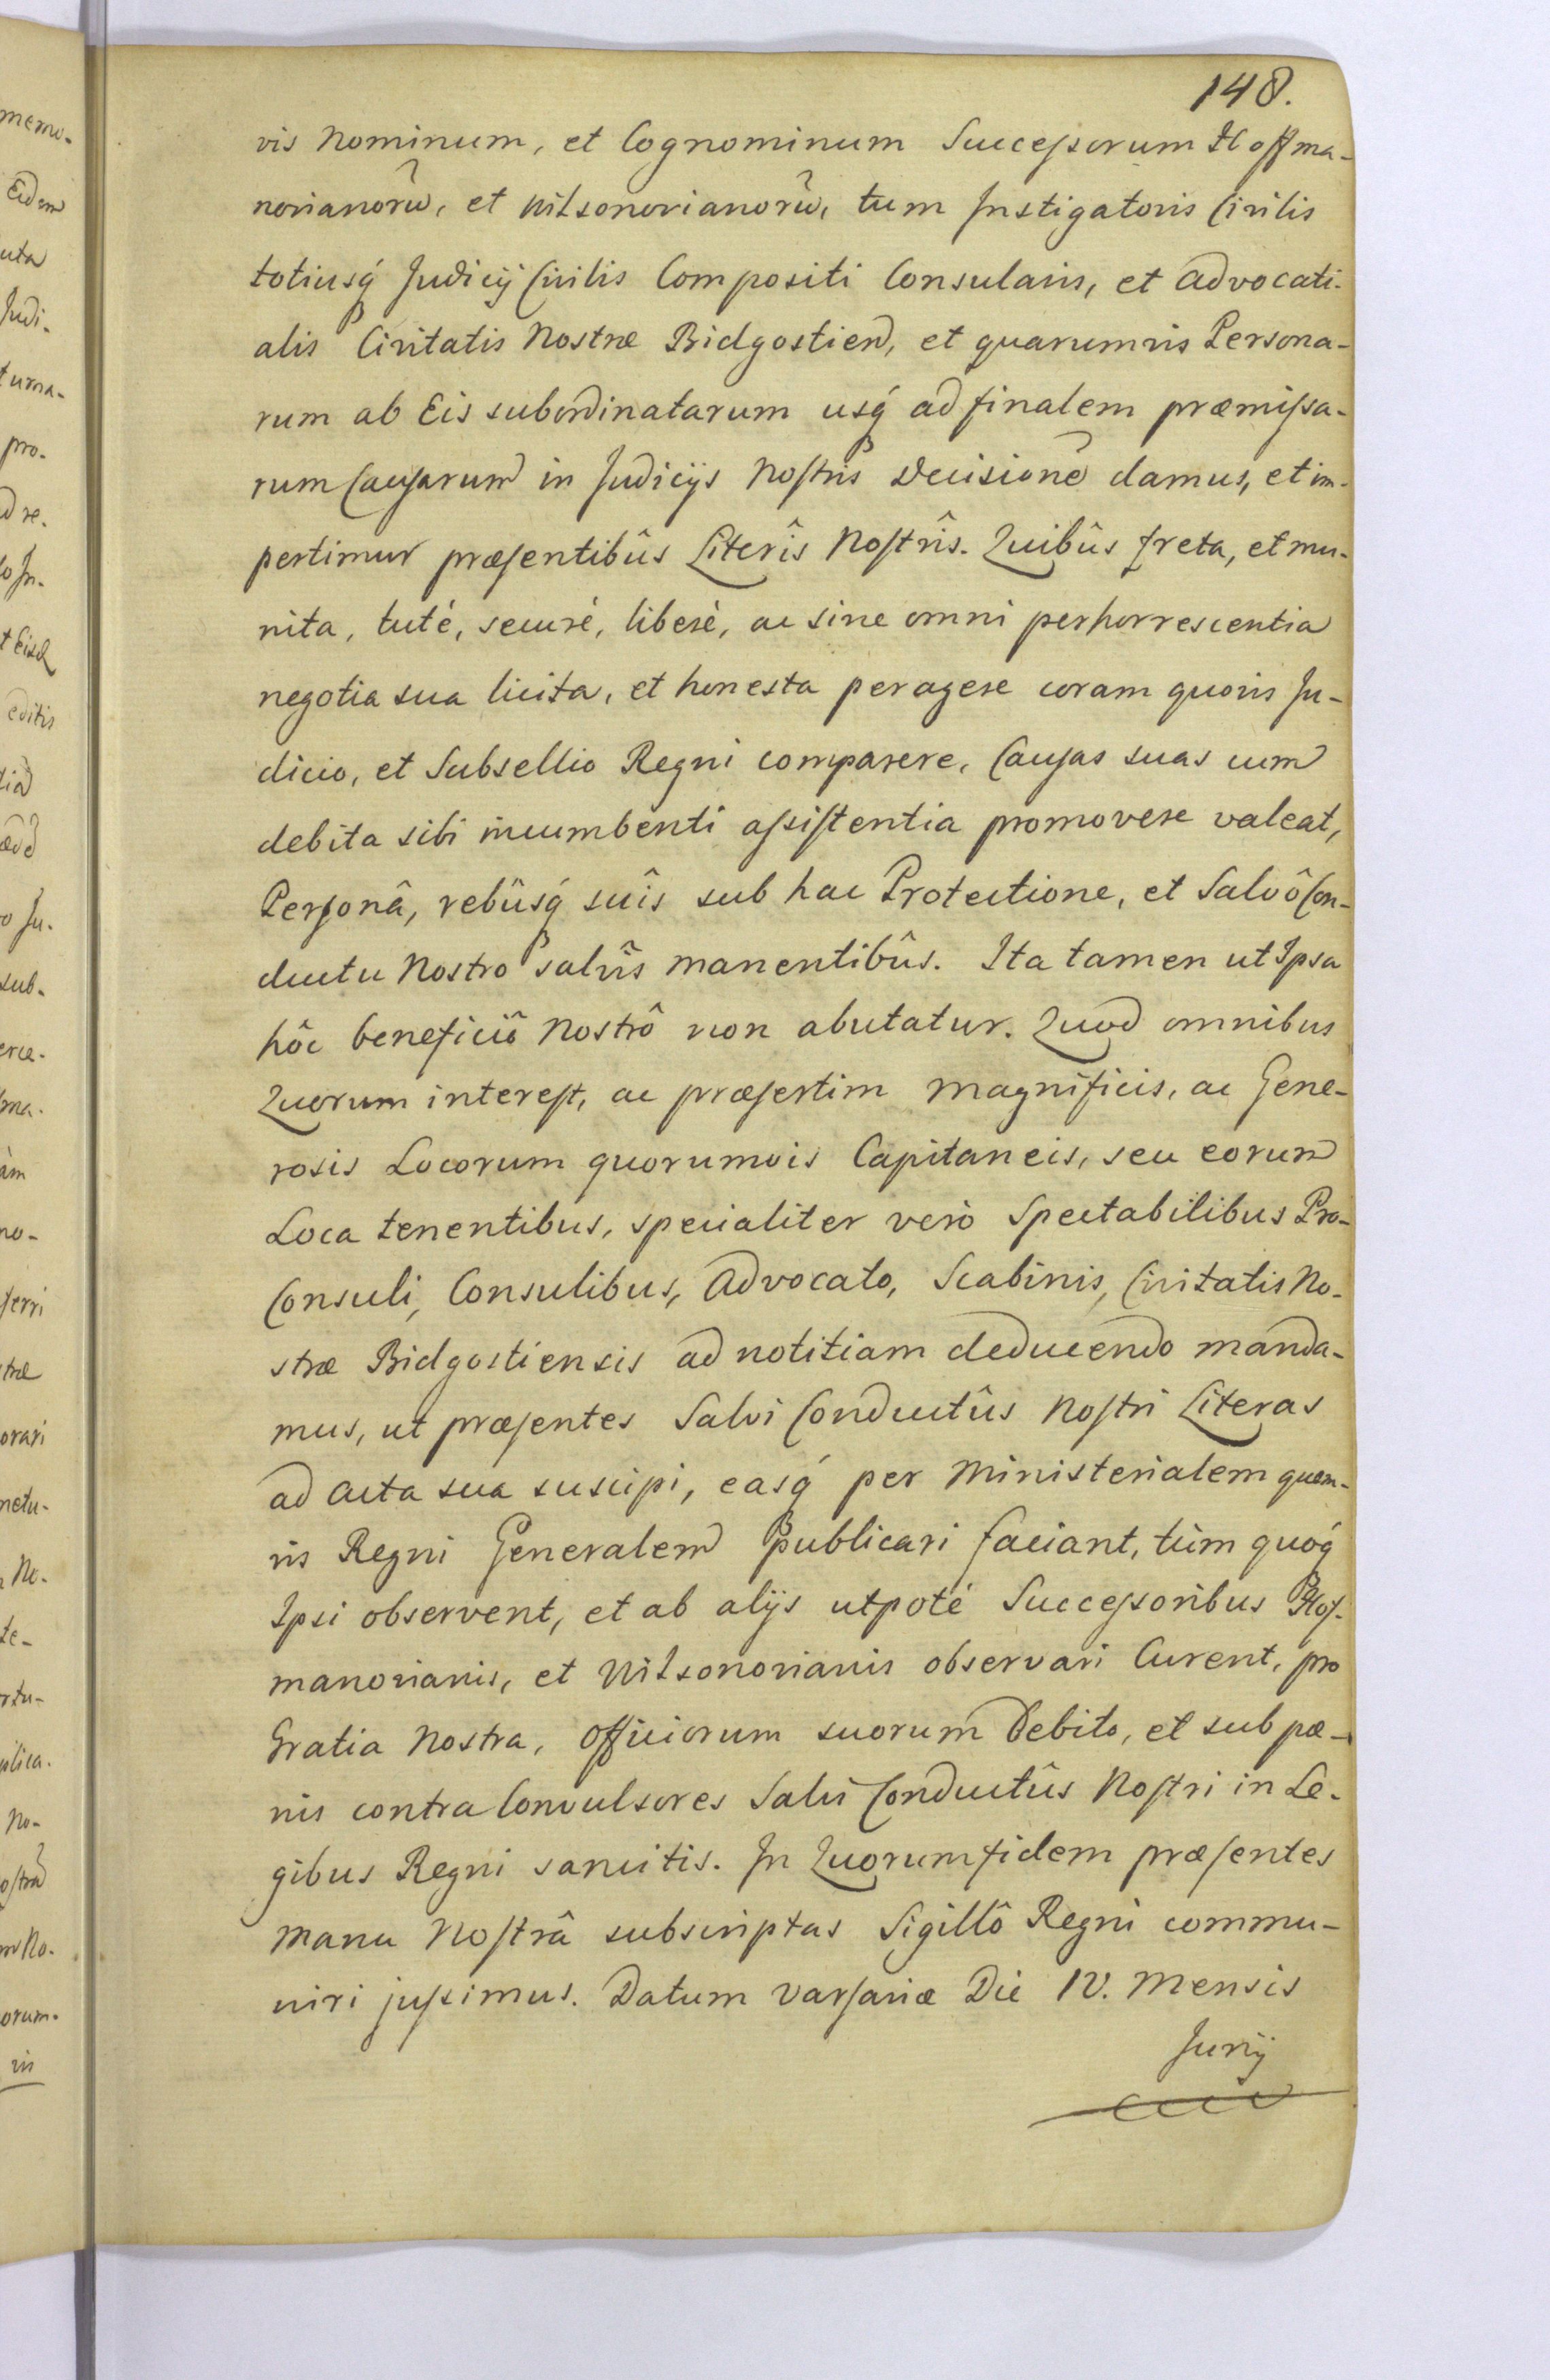 148.
vis Nominum, et Cognominum Successorum Hoffma-
novianorũ, et Witsonovianorũ, tum Instigatoris Civilis
totiusq́ Judicij Civilis Compositi Consularis, et Advocati-
alis Civitatis Nostræ Bidgostien, et quarumvis Persona-
rum ab Eis subordinatarum usq́ ad finalem præmissa-
rum Causarum in Judicijs Nostris Decisionē damus, et im-
pertimur præsentibûs Literîs Nostrîs. Quibûs freta, et mu-
nita, tuté, securé, liberè, ac sine omni perhorrescentia
negotia sua licita, et honesta peragere coram quovis Ju-
dicio, et Subsellio Regni comparere, Causas suas cum
debita sibi incumbenti assistentia promovere valeat,
Personâ, rebûsq́ suîs sub hac Protectione, et Salvô Con-
ductu Nostro salvîs manentibûs. Ita tamen ut Ipsa
hôc beneficiô Nostrô non abutatur. Quod omnibus
Quorum interest, ac præsertim Magnificis, ac Gene-
rosis Locorum quorumvis Capitaneis, seu eorum
Loca tenentibus, specialiter verò Spectabilibus Pro-
Consuli, Consulibus, Advocato, Scabinis, Civitatis No-
stræ Bidgostiensis ad notitiam deducendo manda-
mus, ut præsentes Salvi Conductûs Nostri Literas
ad Acta sua suscipi, easq́ per Ministerialem quem-
vis Regni Generalem publicari faciant, tùm quoq́
Ipsi observent, et ab alijs utpoté Successoribus Hof-
manovianis, et Witsonovianis observari Curent, pro
Gratia Nostra, Officiorum suorum Debito, et sub pæ-
nis contra Convulsores Salvi Conductûs Nostri in Le-
gibus Regni sancitis. In Quorum fidem præsentes
Manu Nostrâ subscriptas Sigillô Regni commu-
niri jussimus. Datum Varsaviæ Die IV. Mensis
Junij
memo-
Eidem
uta
Judi-
turna-
pro-
d re-
lo In-
editis
o Ju-
sub-
ma-
no-
ferri
træ
orari
metu-
No-
te-
rtu-
plica-
No-
ostra
m No-
orum-
vis